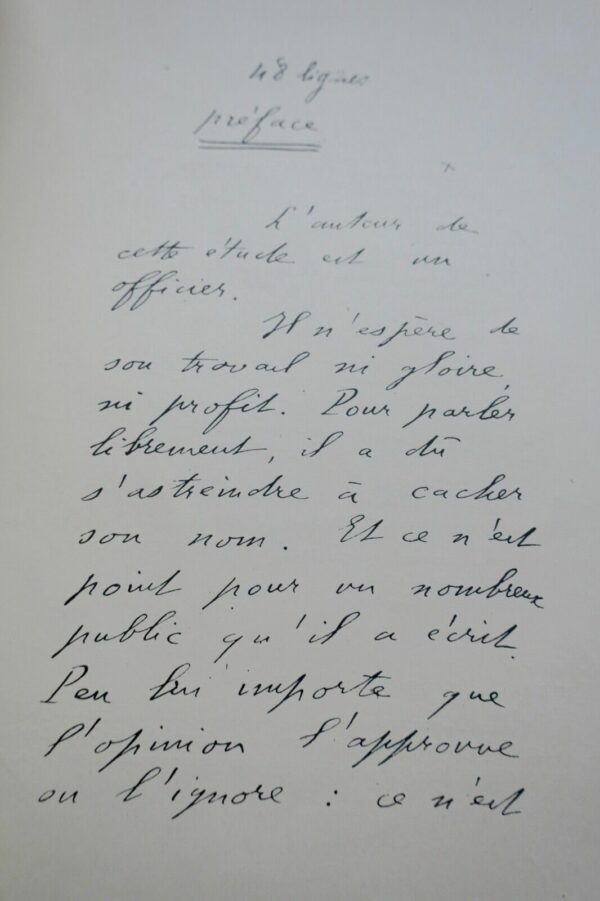 48 lignes
préface
L'auteur de
cette étude est un
officier.
Il n'espère de
son travail ni gloire,
ni profit. Pour parler
librement, il a dû
s'astreindre à cacher
son nom. Et ce n'est
point pour un nombreux
public qu'il a écrit.
Peu lui importe que
l'opinion l'approuve
ou l'ignore : ce n'est